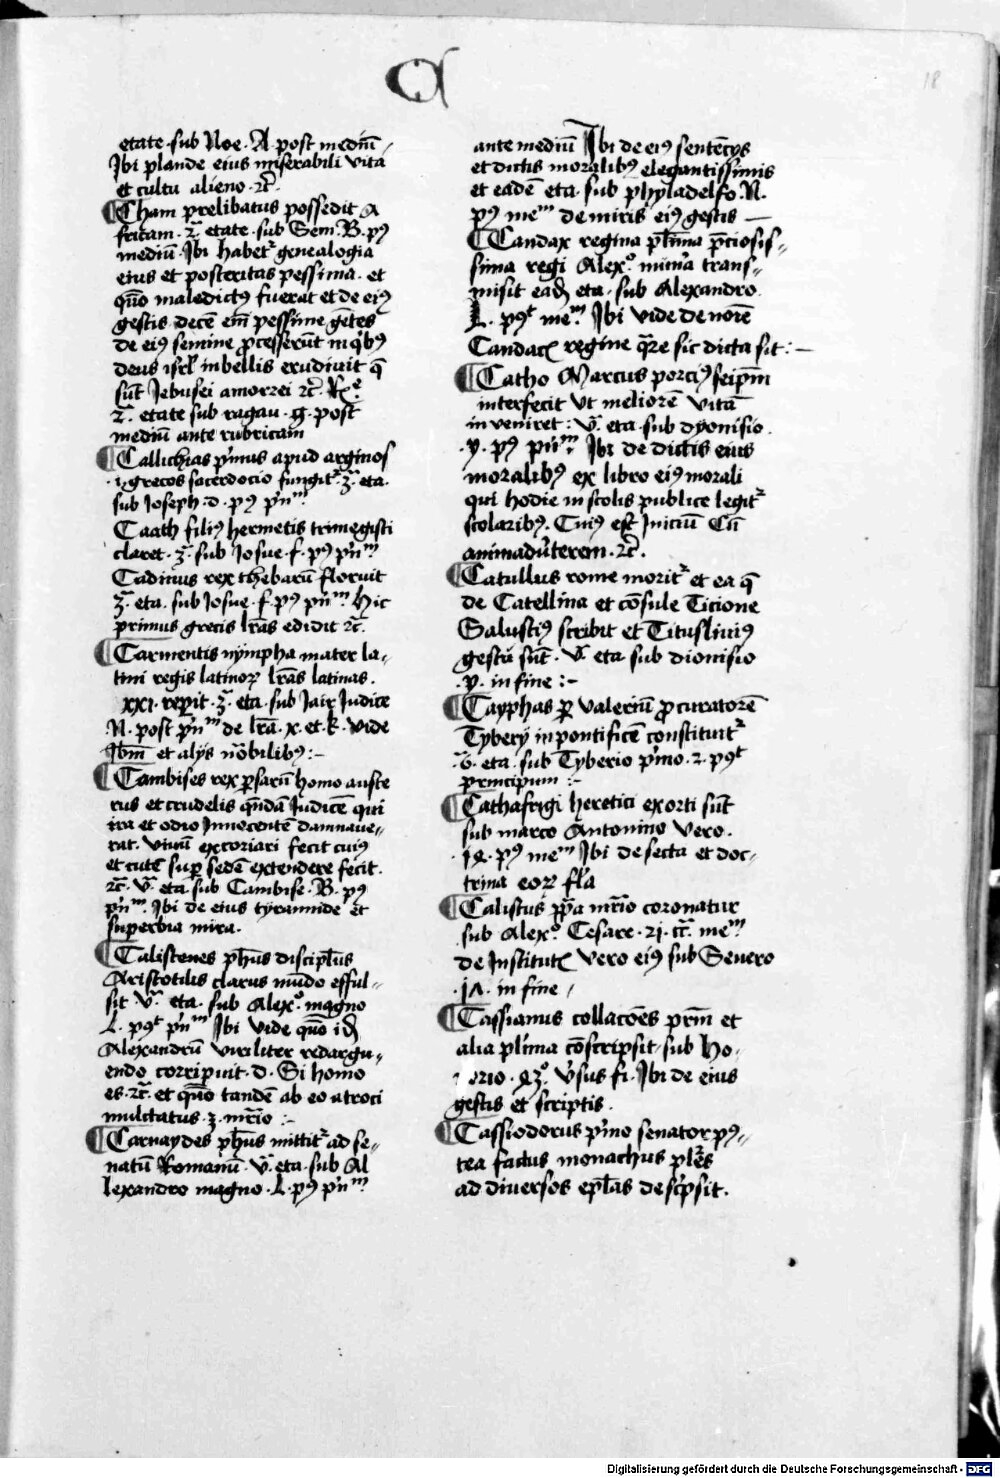 Ca
18
etate · sub Noe · A · post mediū /
Ibi plande eius miserabili vita
et cultu alieno · ꝛc̄ ·
¶ Cham prelibatus possedit A
fricam · 2ᵃ etate · sub Sem · B · pꝰ
mediū · Ibi habetʳ genealogia
eius et posteritas pessima · et
quō maledictꝰ fuerat et de eiꝰ
gestis · decē em̄ pessime gētes
de eiꝰ semine ꝓcesserūt in qͥbꝰ
deus isrl̄ in bellis erudiuit q̄
sūt Iebusei amorrei ꝛc̄ · Rͤ
2ᵃ etate sub ragau · g · post
mediū ante rubricam
¶ Callichias pͥmus apud arginos
·i· grecos sacerdocio fungitʳ · 3ᵃ eta ·
sub Ioseph · d · pꝰ pͥnᵐ ·
Caath filiꝰ hermetis trimegisti
claret · 3ᵃ · sub Iosue · f · pꝰ pͥnᵐ
Cadinus rex thebarū floruit
3ᵃ · eta · sub Iosue · f · pꝰ pͥnᵐ · Hic
primus grecis lr̄as edidit ꝛc̄ ·
¶ Carmentis nympha mater la⸗
tini regis latinoꝝ lr̄as latinas ·
xxi · repit · 3ᵃ · eta · sub Iair Iudice
N · post pͥnᵐ de lr̄a · x · et · k · vide
Ibm̄ et alijs nōbilibꝰ : –
¶ Cambises rex ꝑsarū homo auste
rus et crudelis quēdā Iudicē qui
ira et odio Innocentē damnaue⸗
rat · viuū excoriari fecit cuiꝰ
et cutē suꝑ sedē extendere fecit ·
ꝛc̄ · vᵃ · eta · sub Cambise · B · pꝰ
pͥnᵐ · Ibi de eius tyrannide et
superbia mira ·
¶ Calistenes ph̄us discipl̄us
Aristotilis clarus mūdo efful⸗
sit · vᵃ · eta · sub Alexº · magno
L · pꝰᵗ pͥnᵐ Ibi vide quō id̄
Alexandrū viriliter redargu⸗
endo corripuit · d · Si homo
es · ꝛc̄ · et quō tandē ab eo atroci
mulctatus · 3 · mr̄io : –
¶ Carnaydes ph̄us mittitʳ ad se⸗
natū Romanū · vᵃ · eta · sub Al
lexandro magno · L · pꝰ pͥnᵐ
ante mediū Ibi de eiꝰ sentēcijs
et dictis moralibꝰ elegantissimis
et eadē eta · sub phyladelfo · N ·
pꝰ meᵐ de miris eiꝰ gestis —
¶ Candax regina pl̄ima p̄ciosis⸗
sima regi Alexº · mūa trans⸗
misit ead̄ eta · sub Alexandro
L · pꝰᵗ meᵐ · Ibi vide de noīe
Candacꝭ regine qͣre sic dicta sit : –
¶ Catho Marcus porciꝰ seipm̄
interfecit vt meliorē vitā
inveniret : vᵃ · eta · sub dyonisio ·
·y· pꝰ pͥnᵐ · Ibi de dictis eius
moralibꝰ ex libro eiꝰ morali
qui hodie in scolis publice legitʳ
scolaribꝰ · Cuiꝰ est Iniciū Cū
animadu̓terem · ꝛc̄ ·
¶ Catullus rome moritʳ et ea q̄
de Catellina et cōsule Ticione
Salustiꝰ scribit et Titusliuiꝰ
gesta sūt · vᵃ eta sub dionisio
·y· in fine : –
¶ Cayphas ꝑ valeriū ꝓcuratorē
Tyberij in pontificē constituitʳ
·6ᵃ· eta · sub Tyberio pͥmo · 2 · pꝰᵗ
principum : –
¶ Cathafrigi heretici exorti sūt
sub marco Antonino vero ·
·18· pꝰ meᵐ Ibi de secta et doc⸗
trina eoꝝ fl̄a
¶ Calistus pp̄a mr̄io coronatur
sub Alexº · Cesare · 21 · cc̄ · meᵐ
de Institutꝭ vero eiꝰ sub Seuero
·17· in fine /
¶ Cassianus collacōes pr̄m et
alia pl̄ima cōscripsit · sub Ho⸗
norio · 43º · v̓sus fi · Ibi de eius
gestis et scriptis ·
¶ Cassiodorus pͥmo senator pꝰ⸗
tea factus monachus pl̄es
ad diuersos epl̄as descͥpsit ·
Digitalisierung gefördert durch die Deutsche Forschungsgemeinschaft - DFG